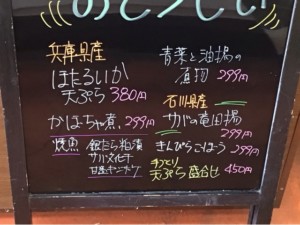 おとつしい
兵庫県産
ほたるいか
天ぷら 380円
かぼちゃ煮 299円
焼魚
銀だら粕漬
サバ文化干
青菜と油揚の
煮物 299円
石川県産
サバの竜田揚
299円
きんぴらごぼう 299円
手づくり
天ぷら盛合せ 450円